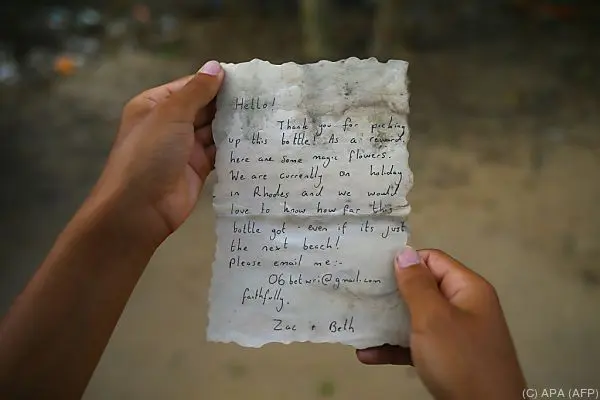 Hello!
Thank you for picking
up this bottle! As a reward,
here are some magic flowers.
We are currently on holiday
in Rhodes and we would
love to know how far this
bottle got - even if its just
the next beach!
Please email me:-
06betwri@gmail.com
faithfully,
Zac + Beth
(C) APA (AFP)